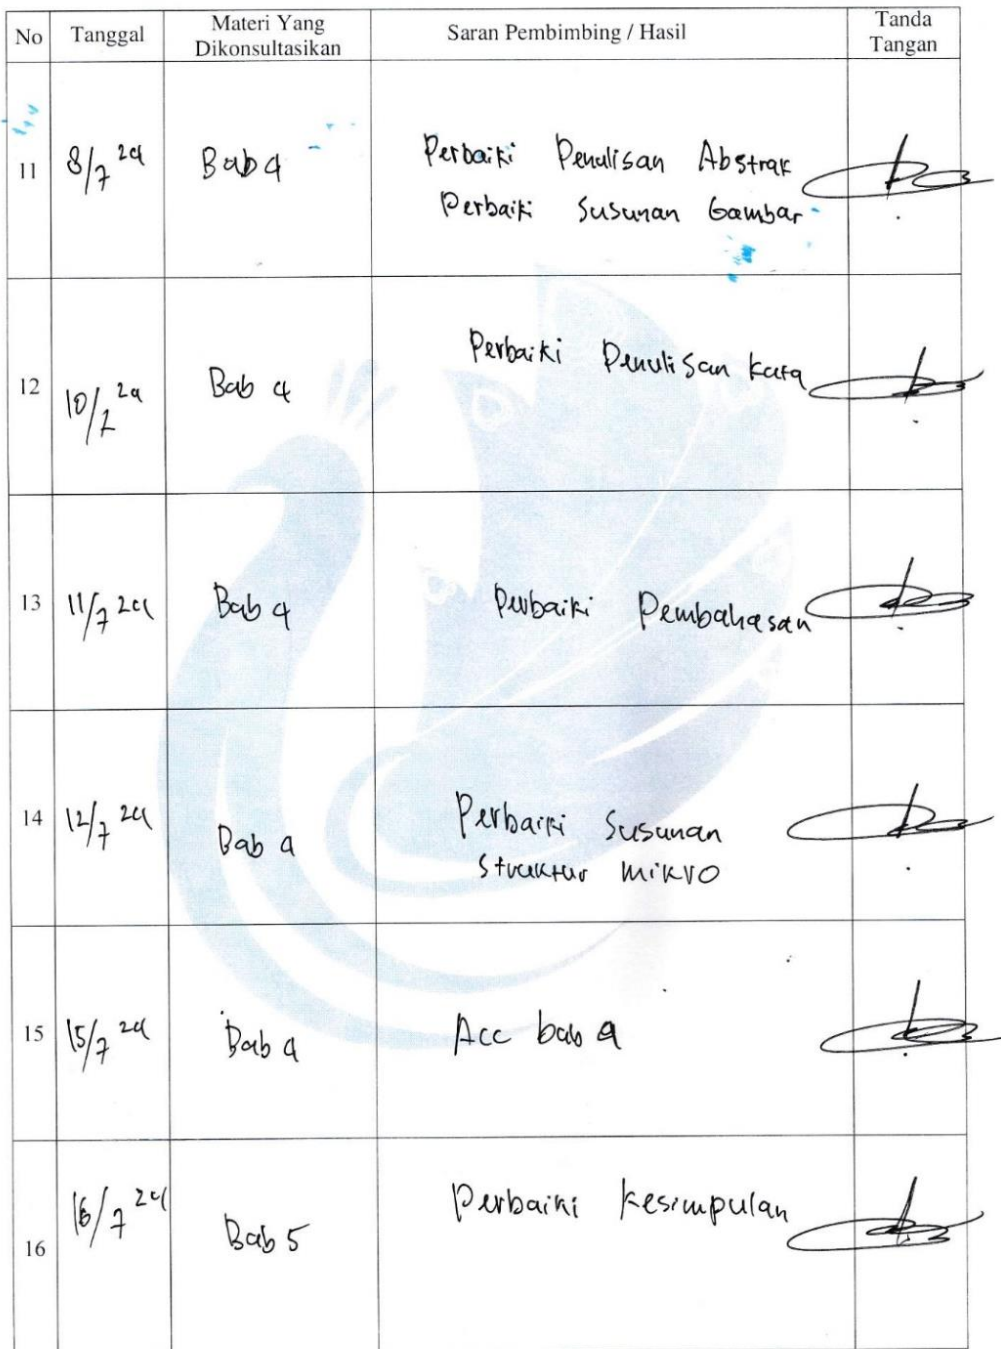 No Tanggal Materi Yang Dikonsultasikan Saran Pembimbing / Hasil Tanda Tangan
11 8/7 24 Bab 4 Perbaiki Penulisan Abstrak
Perbaiki Susunan Gambar
12 10/7 24 Bab 4 Perbaiki Penulisan kata
13 11/7 24 Bab 4 Perbaiki Pembahasan
14 12/7 24 Bab 4 Perbaiki Susunan
Struktur mikro
15 15/7 24 Bab 4 Acc bab 4
16 16/7 24 Bab 5 Perbaiki kesimpulan